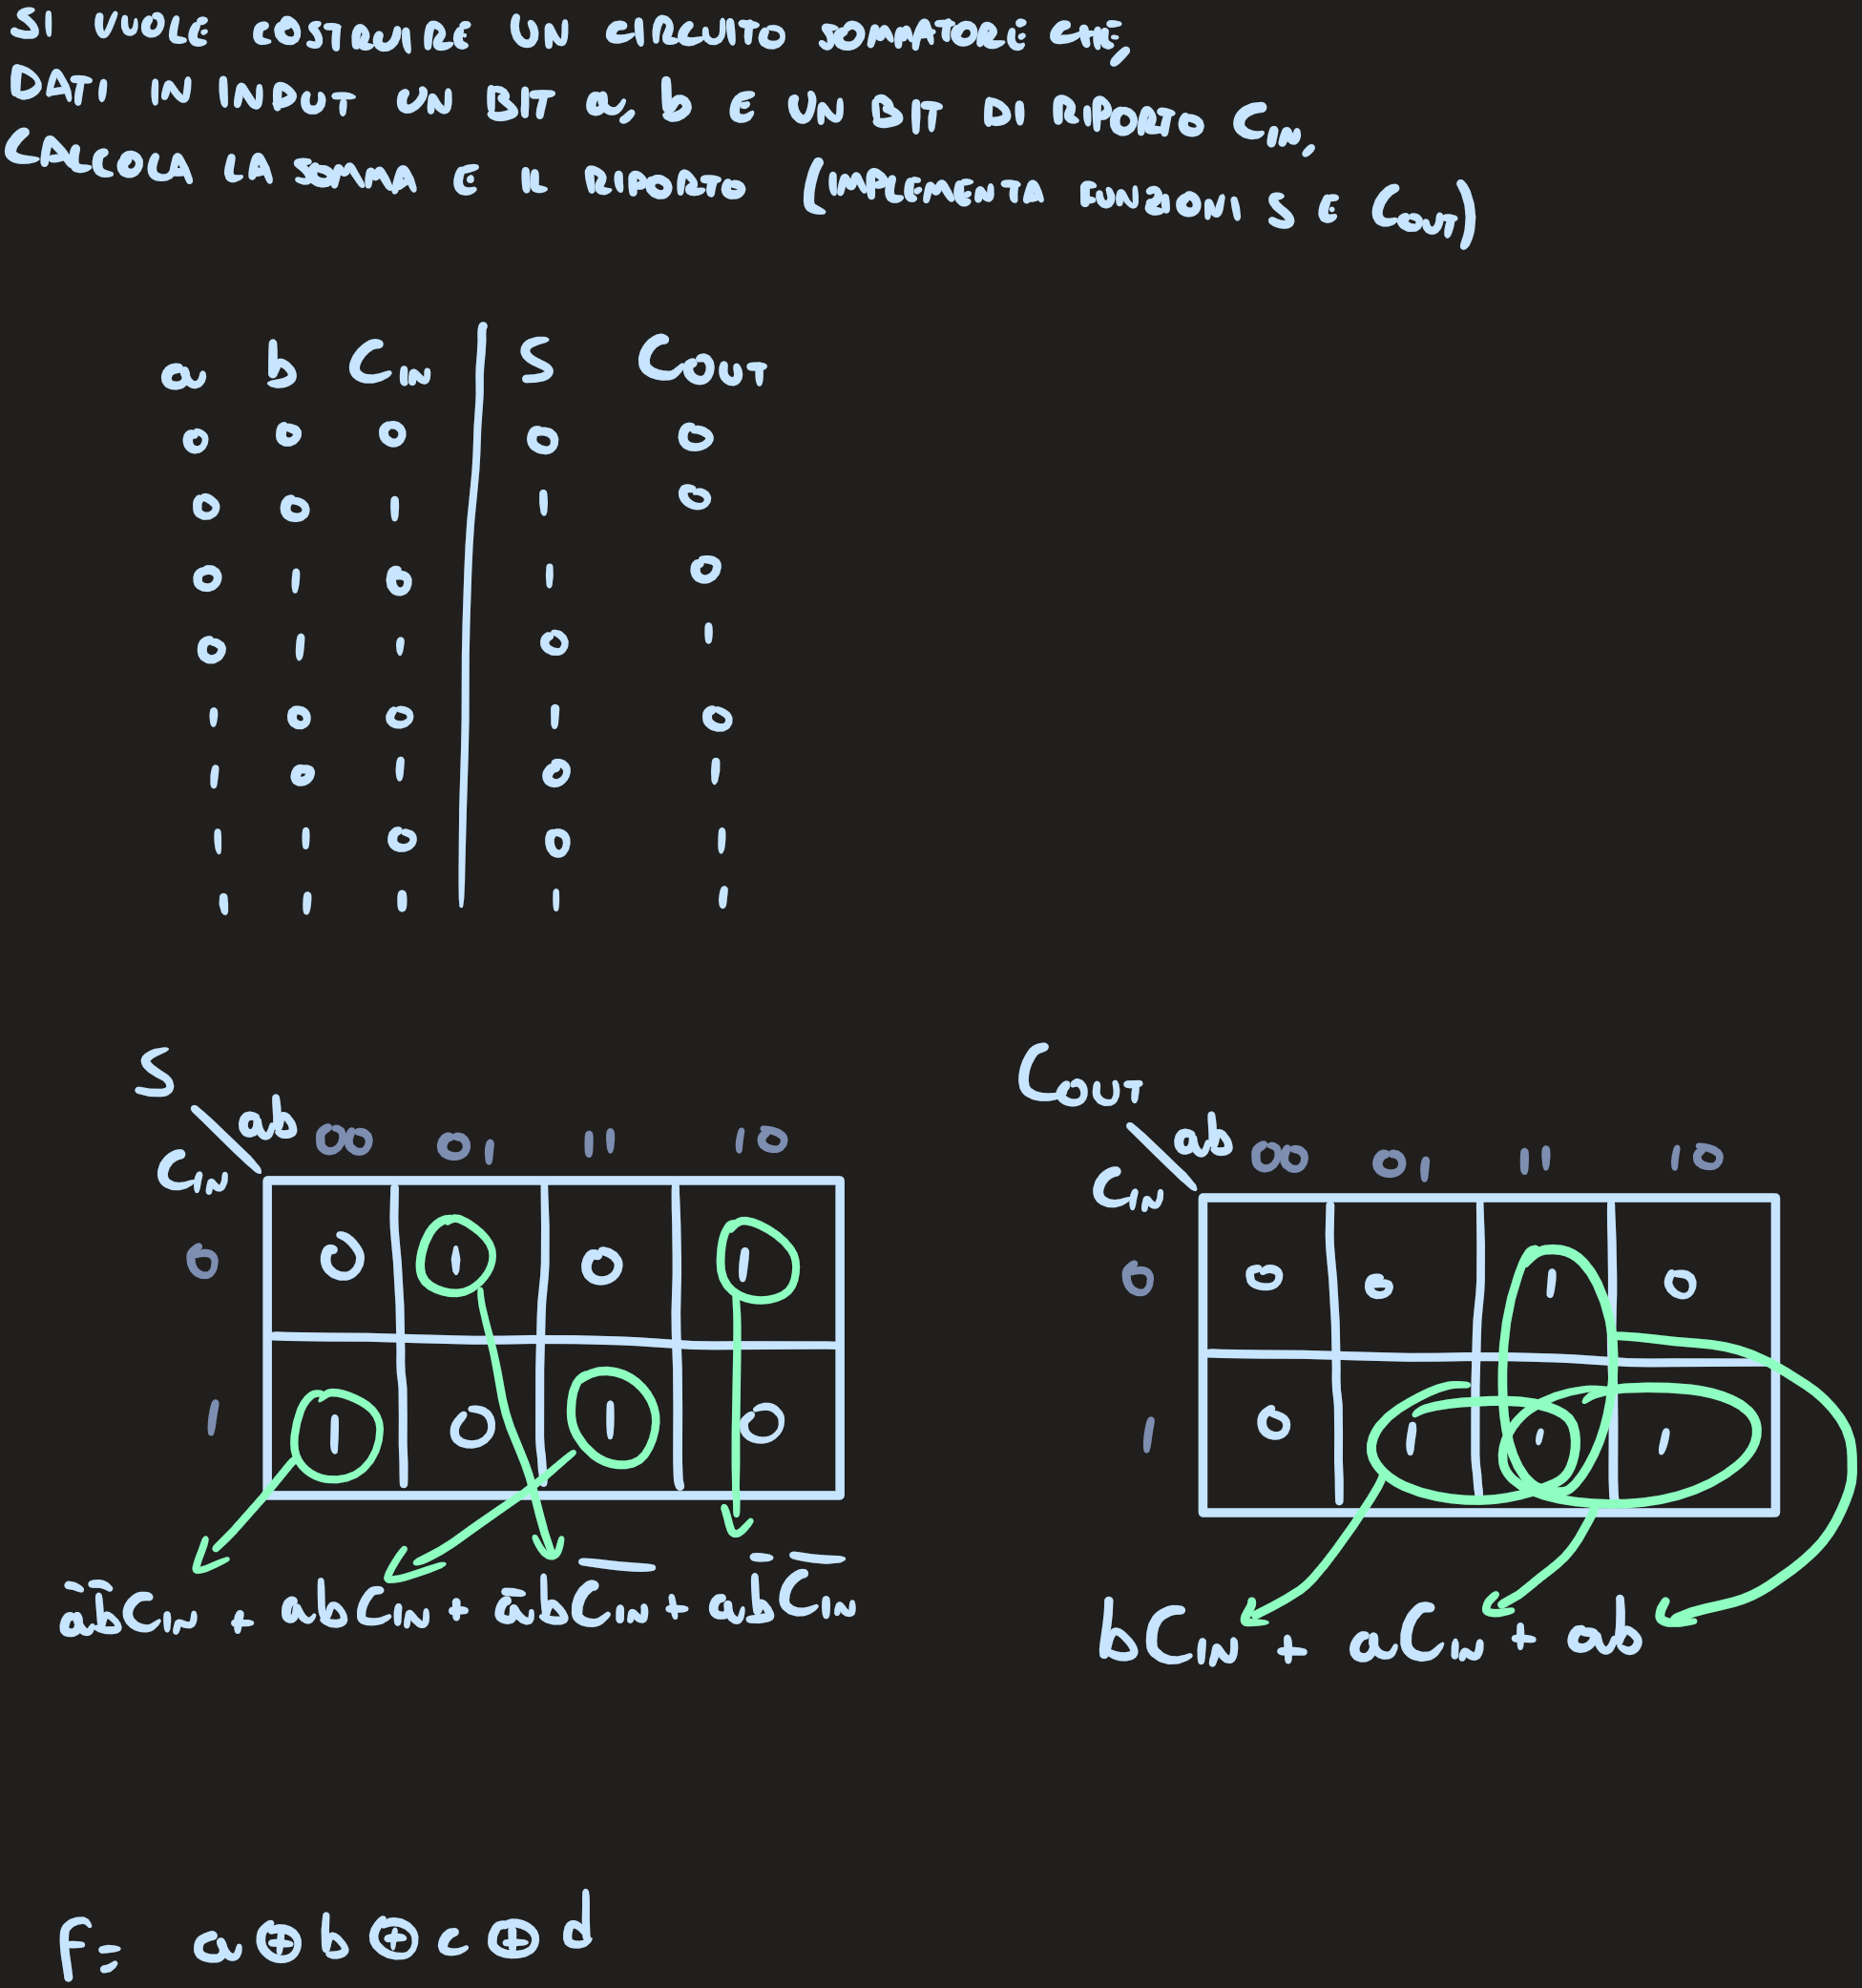 SI VUOLE COSTRUIRE UN CIRCUITO SOMMATORE CHE,
DATI IN INPUT UN BIT a, b E UN BIT DI RIPORTO C_IN,
CALCOLA LA SOMMA E IL RIPORTO (IMPLEMENTA FUNZIONI S E C_OUT)
a b C_IN | S C_OUT
0 0 0 | 0 0
0 0 1 | 1 0
0 1 0 | 1 0
0 1 1 | 0 1
1 0 0 | 1 0
1 0 1 | 0 1
1 1 0 | 0 1
1 1 1 | 1 1
S
ab 00 01 11 10
C_IN
0 0 1 0 1
1 1 0 1 0
āb̄C_IN + abC_IN + āb\overline{C_IN} + ab̄\overline{C_IN}
C_OUT
ab 00 01 11 10
C_IN
0 0 0 1 0
1 0 1 1 1
bC_IN + aC_IN + ab
F = a ⊕ b ⊕ c ⊕ d